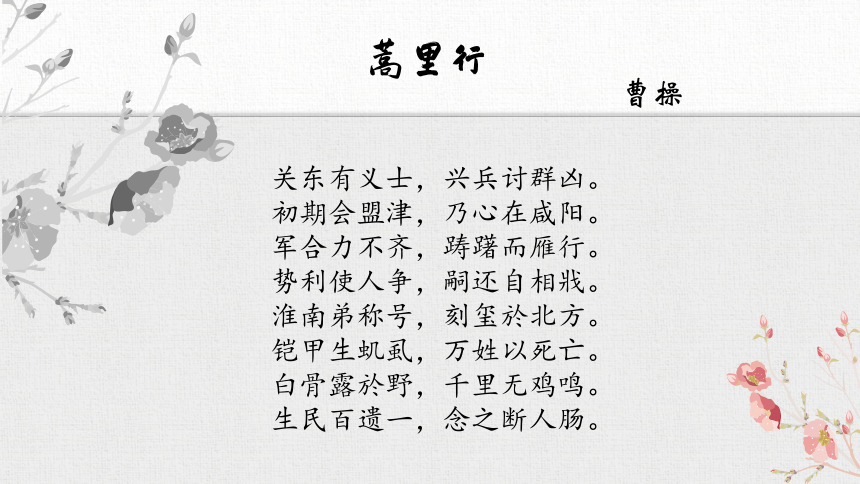 蒿里行
曹操
关东有义士，兴兵讨群凶。
初期会盟津，乃心在咸阳。
军合力不齐，踌躇而雁行。
势利使人争，嗣还自相戕。
淮南弟称号，刻玺於北方。
铠甲生虮虱，万姓以死亡。
白骨露於野，千里无鸡鸣。
生民百遗一，念之断人肠。